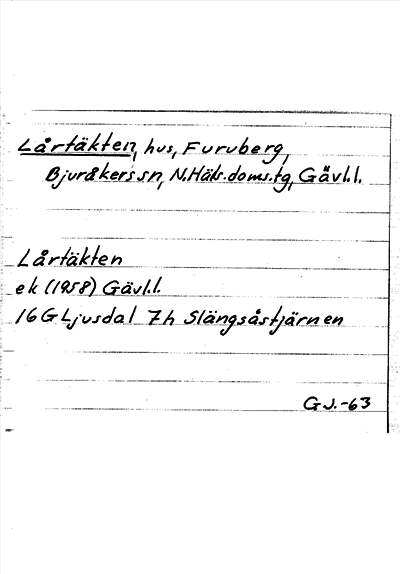 Lårtäkten, hus, Furuberg,
Bjuråkers sn, N.Häls.doms.tg, Gävl.l.
Lårtäkten
ek (1958) Gävl.l.
16 G Ljusdal 7h Slängsåstjärnen
G J.-63